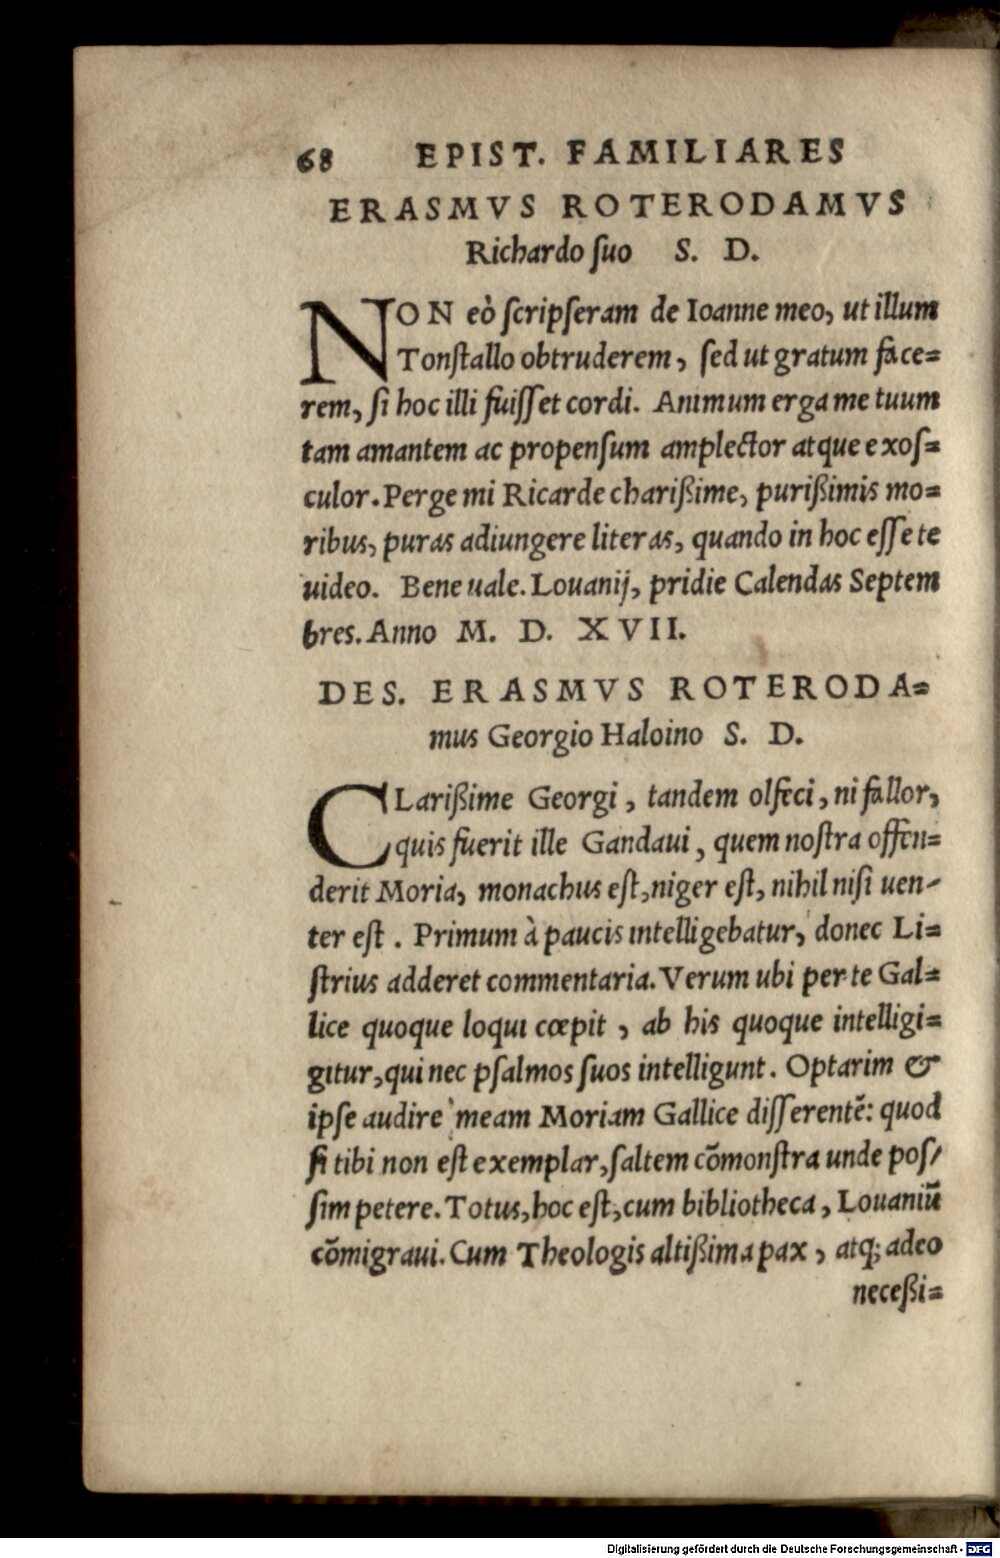 68 EPIST. FAMILIARES
ERASMVS ROTERODAMVS
Richardo ſuo S. D.
NON eò ſcripſeram de Ioanne meo, ut illum
Tonſtallo obtruderem, ſed ut gratum face=
rem, ſi hoc illi fuiſſet cordi. Animum erga me tuum
tam amantem ac propenſum amplector atque exoſ=
culor. Perge mi Ricarde charißime, purißimis mo=
ribus, puras adiungere literas, quando in hoc eſſe te
uideo. Bene uale. Louanij, pridie Calendas Septem
bres. Anno M. D. XVII.
DES. ERASMVS ROTERODA=
mus Georgio Haloino S. D.
CLarißime Georgi, tandem olfeci, ni fallor,
quis fuerit ille Gandaui, quem noſtra offen=
derit Moria, monachus eſt, niger eſt, nihil niſi uen-
ter eſt. Primum à paucis intelligebatur, donec Li=
ſtrius adderet commentaria. Verum ubi per te Gal=
lice quoque loqui cœpit, ab his quoque intelligi=
gitur, qui nec pſalmos ſuos intelligunt. Optarim &
ipſe audire meam Moriam Gallice diſſerentē: quod
ſi tibi non eſt exemplar, ſaltem cōmonſtra unde poſ/
ſim petere. Totus, hoc eſt, cum bibliotheca, Louaniū
cōmigraui. Cum Theologis altißima pax, atq; adeo
neceßi=
Digitalisierung gefördert durch die Deutsche Forschungsgemeinschaft - DFG